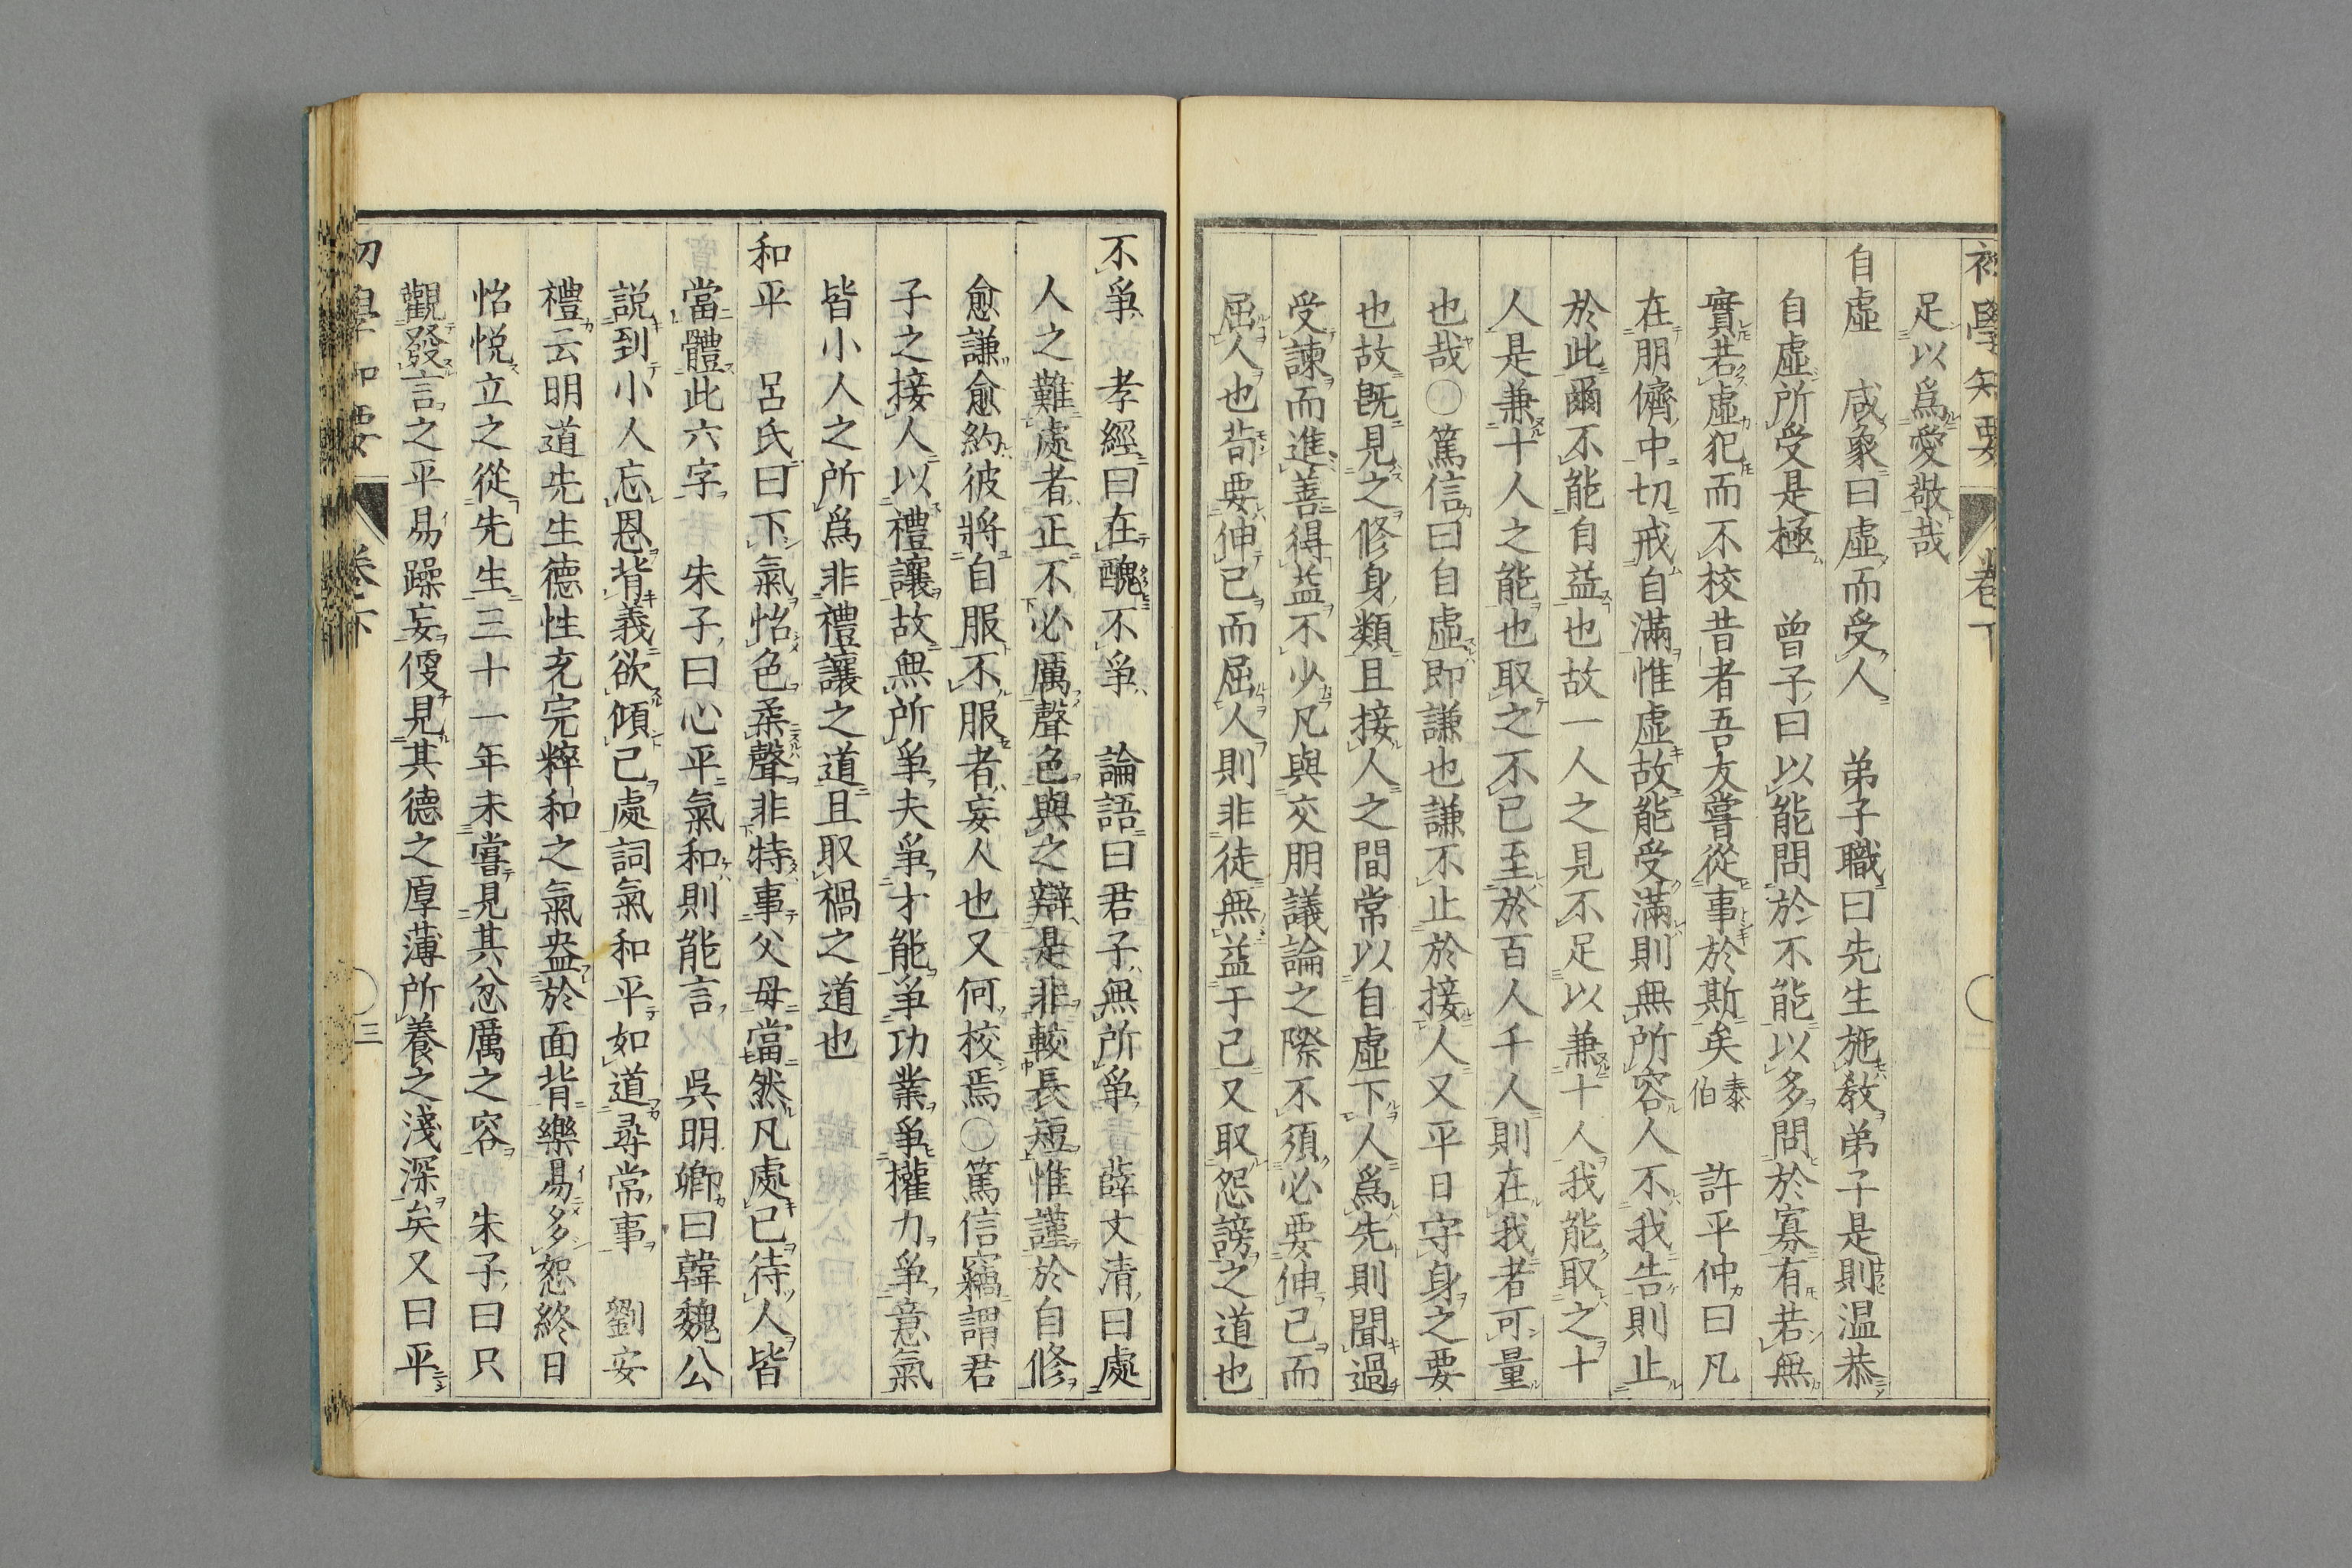 初學知要 卷下
足以爲愛敬哉
自虛 咸象曰虛而受人 弟子職曰先生施教弟子是則温恭
自虛所受是極 曾子曰以能問於不能以多問於寡有若無
實若虛犯而不校昔者吾友嘗從事於斯矣泰伯 許平仲曰凡
在朋儕中切戒自滿惟虛故能受滿則無所容人不我告則止
於此爾不能自益也故一人之見不足以兼十人我能取之十
人是兼十人之能也取之不已至於百人千人則在我者可量
也哉〇篤信曰自虛即謙也謙不止於接人又平日守身之要
也故既見之修身類且接人之間常以自虛下人爲先則聞過
受諫而進善得益不少凡與交朋議論之際不須必要伸己而
屈人也苟要伸己而屈人則非徒無益于己又取怨謗之道也
不爭 孝經曰在醜不爭 論語曰君子無所爭 薛文清曰處
人之難處者正不必厲聲色與之辯是非較長短惟謹於自修
愈謙愈約彼將自服不服者妄人也又何校焉〇篤信竊謂君
子之接人以禮讓故無所爭夫爭才能爭功業爭權力爭意氣
皆小人之所爲非禮讓之道且取禍之道也
和平 呂氏曰下氣怡色柔聲非特事父母當然凡處己待人皆
當體此六字 朱子曰心平氣和則能言 吳明卿曰韓魏公
説到小人忘恩背義欲傾己處詞氣和平如道尋常事 劉安
禮云明道先生德性充完粹和之氣盎於面背樂易多恕終日
怡悦立之從先生三十一年未嘗見其忿厲之容 朱子曰只
觀發言之平易躁妄便見其德之厚薄所養之淺深矣又曰平
初學知要 卷下 三